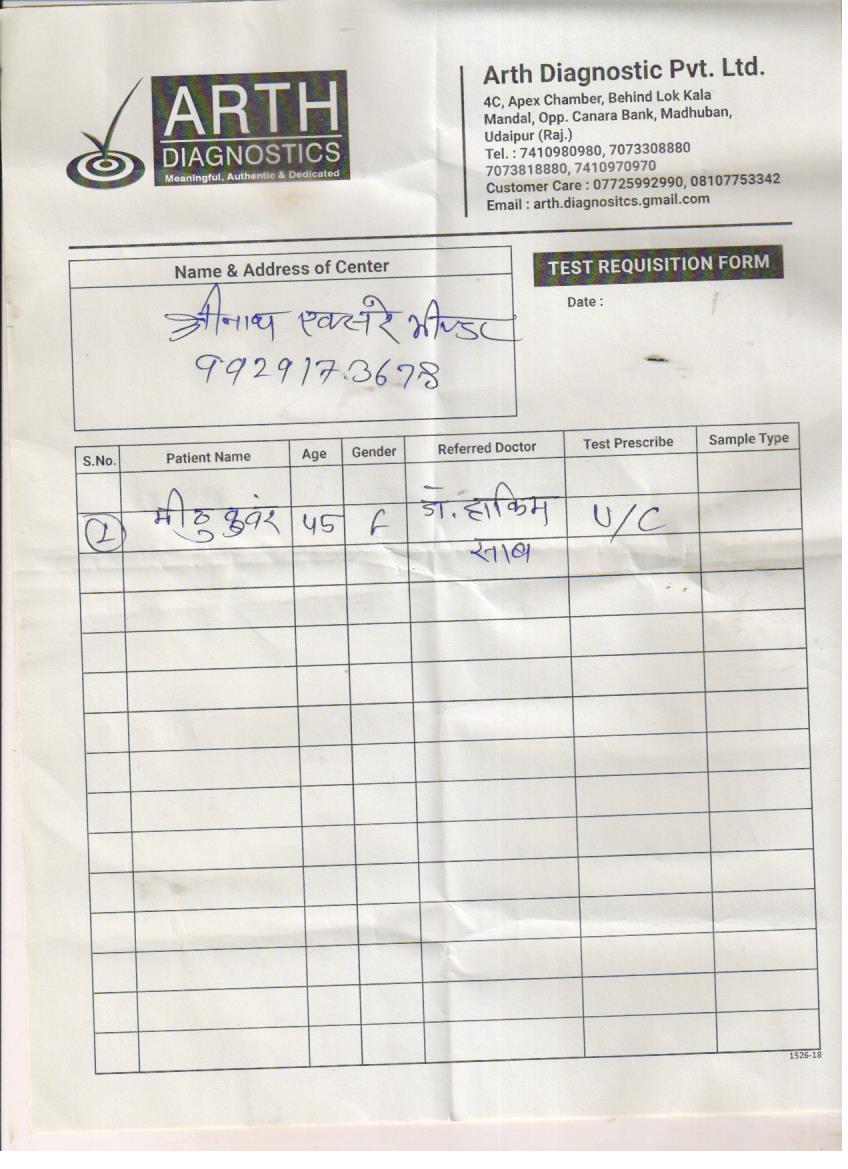 ARTH
DIAGNOSTICS
Meaningful, Authentic & Dedicated
Arth Diagnostic Pvt. Ltd.
4C, Apex Chamber, Behind Lok Kala
Mandal, Opp. Canara Bank, Madhuban,
Udaipur (Raj.)
Tel. : 7410980980, 7073308880
7073818880, 7410970970
Customer Care : 07725992990, 08107753342
Email : arth.diagnositcs.gmail.com
Name & Address of Center
श्रीनाथ एक्सरे भीण्डर
9929173678
TEST REQUISITION FORM
Date :
S.No. Patient Name Age Gender Referred Doctor Test Prescribe Sample Type
1 मीठु कुवंर 45 F डॉ. हाकिम U/C
साब
1526-18